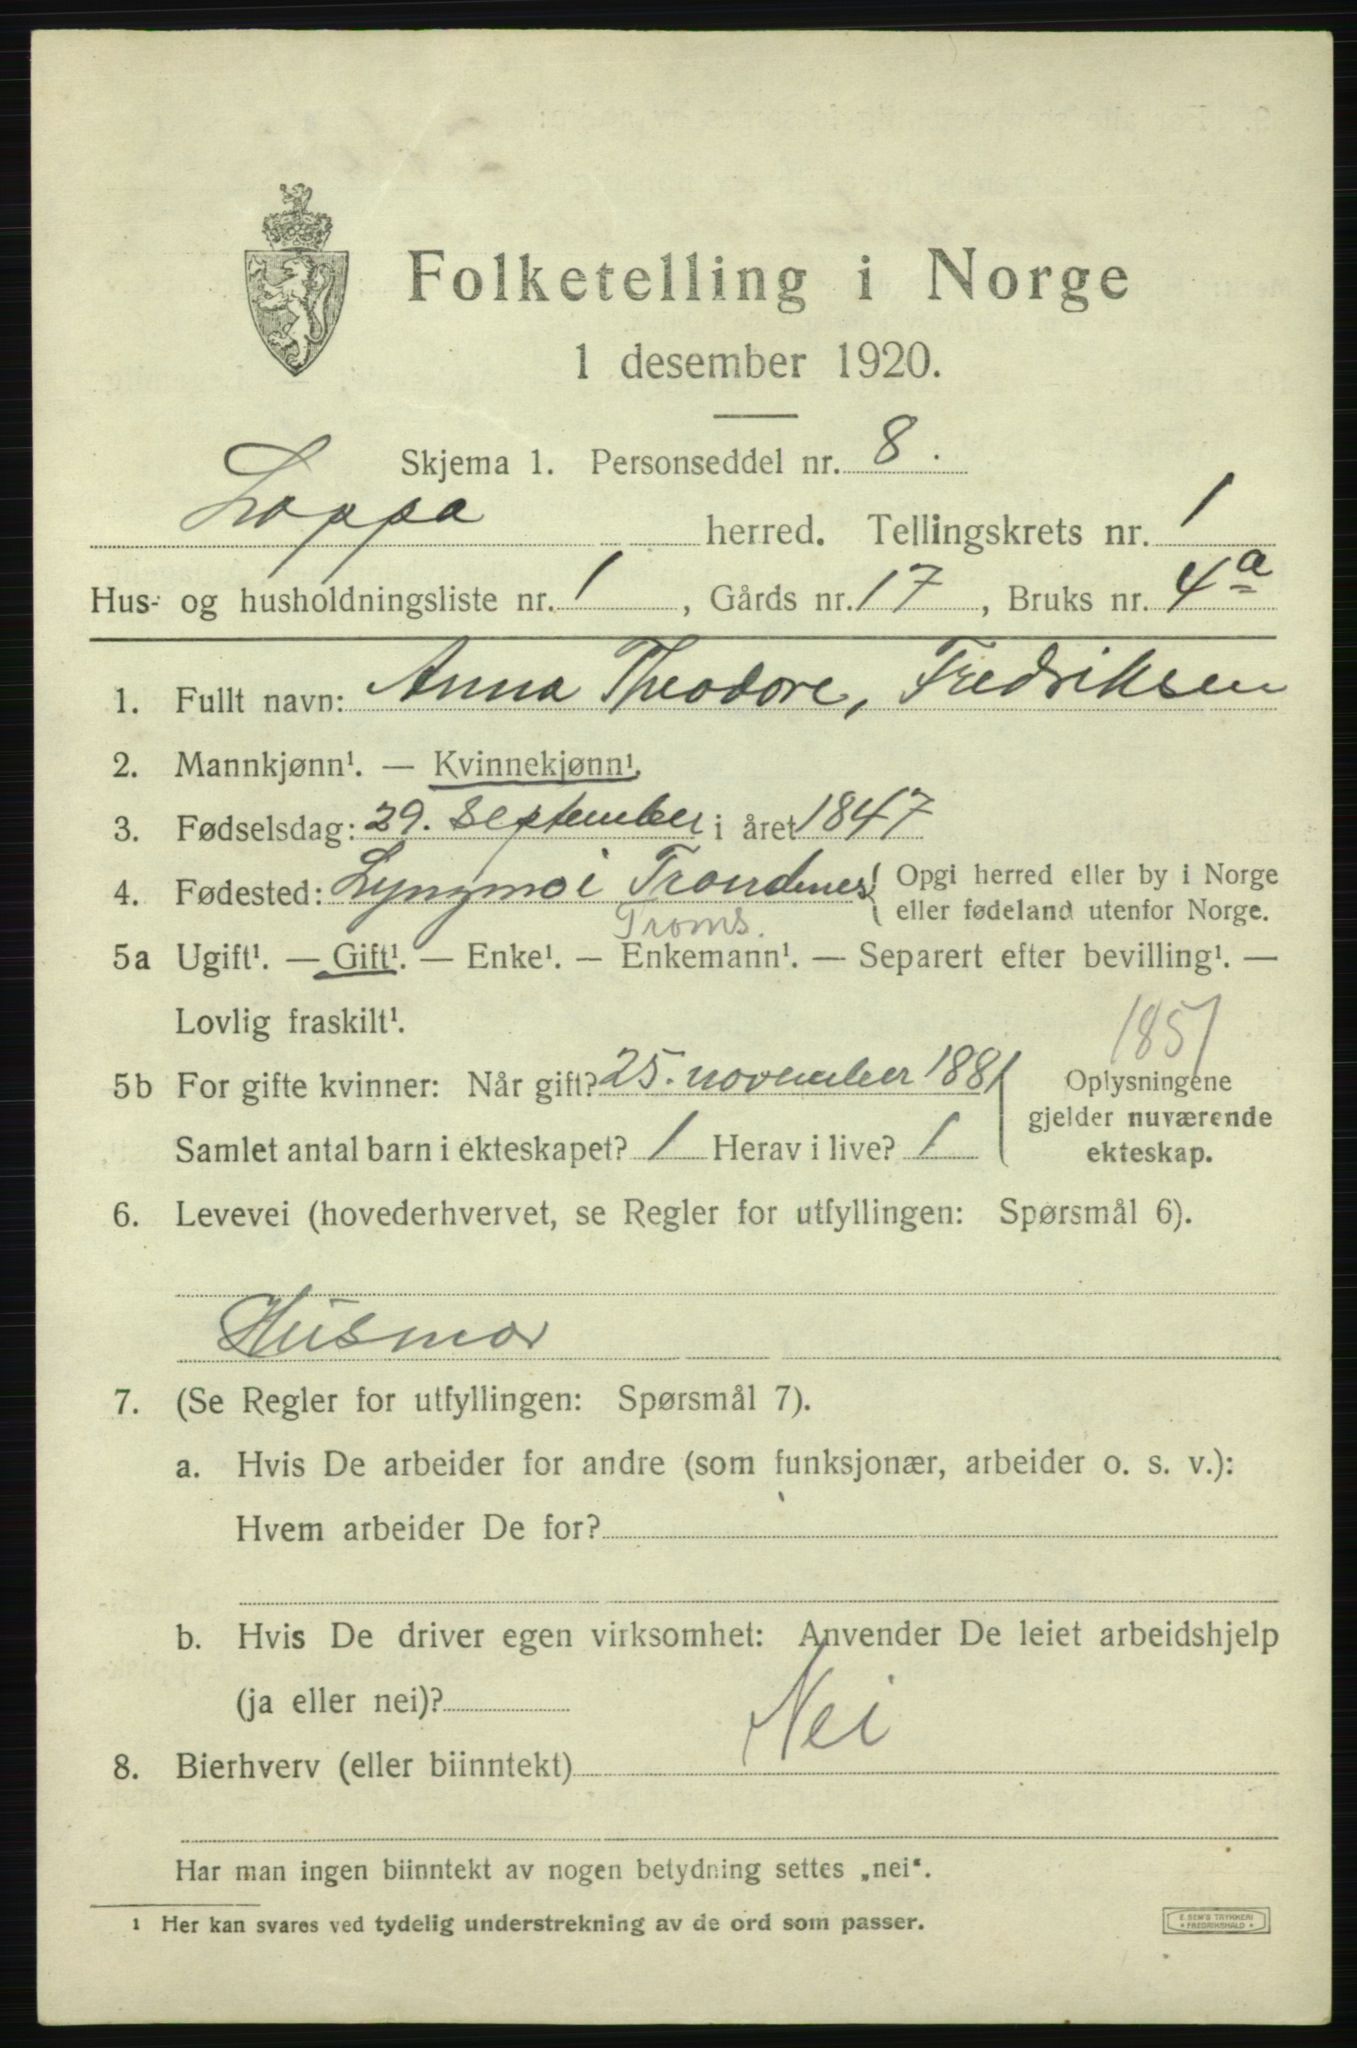 Folketelling i Norge
1 desember 1920.
Skjema 1. Personseddel nr. 8.
Loppa herred. Tellingskrets nr. 1
Hus- og husholdningsliste nr. 1, Gårds nr. 17, Bruks nr. 4a
1. Fullt navn: Anna Theodore, Fredriksen
2. Mannkjønn¹. — Kvinnekjønn¹.
3. Fødselsdag: 29. september i året 1847
4. Fødested: Lyngmo i Trondenes { Opgi herred eller by i Norge
eller fødeland utenfor Norge.
Troms.
5a Ugift¹. — Gift¹. — Enke¹. — Enkemann¹. — Separert efter bevilling¹. —
Lovlig fraskilt¹.
1851
5b For gifte kvinner: Når gift? 25. november 1881
Oplysningene
gjelder nuværende
ekteskap.
Samlet antal barn i ekteskapet? 1 Herav i live? 1
6. Levevei (hovederhvervet, se Regler for utfyllingen: Spørsmål 6).
Husmor
7. (Se Regler for utfyllingen: Spørsmål 7).
a. Hvis De arbeider for andre (som funksjonær, arbeider o. s. v.):
Hvem arbeider De for?
b. Hvis De driver egen virksomhet: Anvender De leiet arbeidshjelp
(ja eller nei)?
8. Bierhverv (eller biinntekt) Nei
Har man ingen biinntekt av nogen betydning settes „nei“.
¹ Her kan svares ved tydelig understrekning av de ord som passer.
E. SEM'S TRYKKERI
FREDRIKSHALD